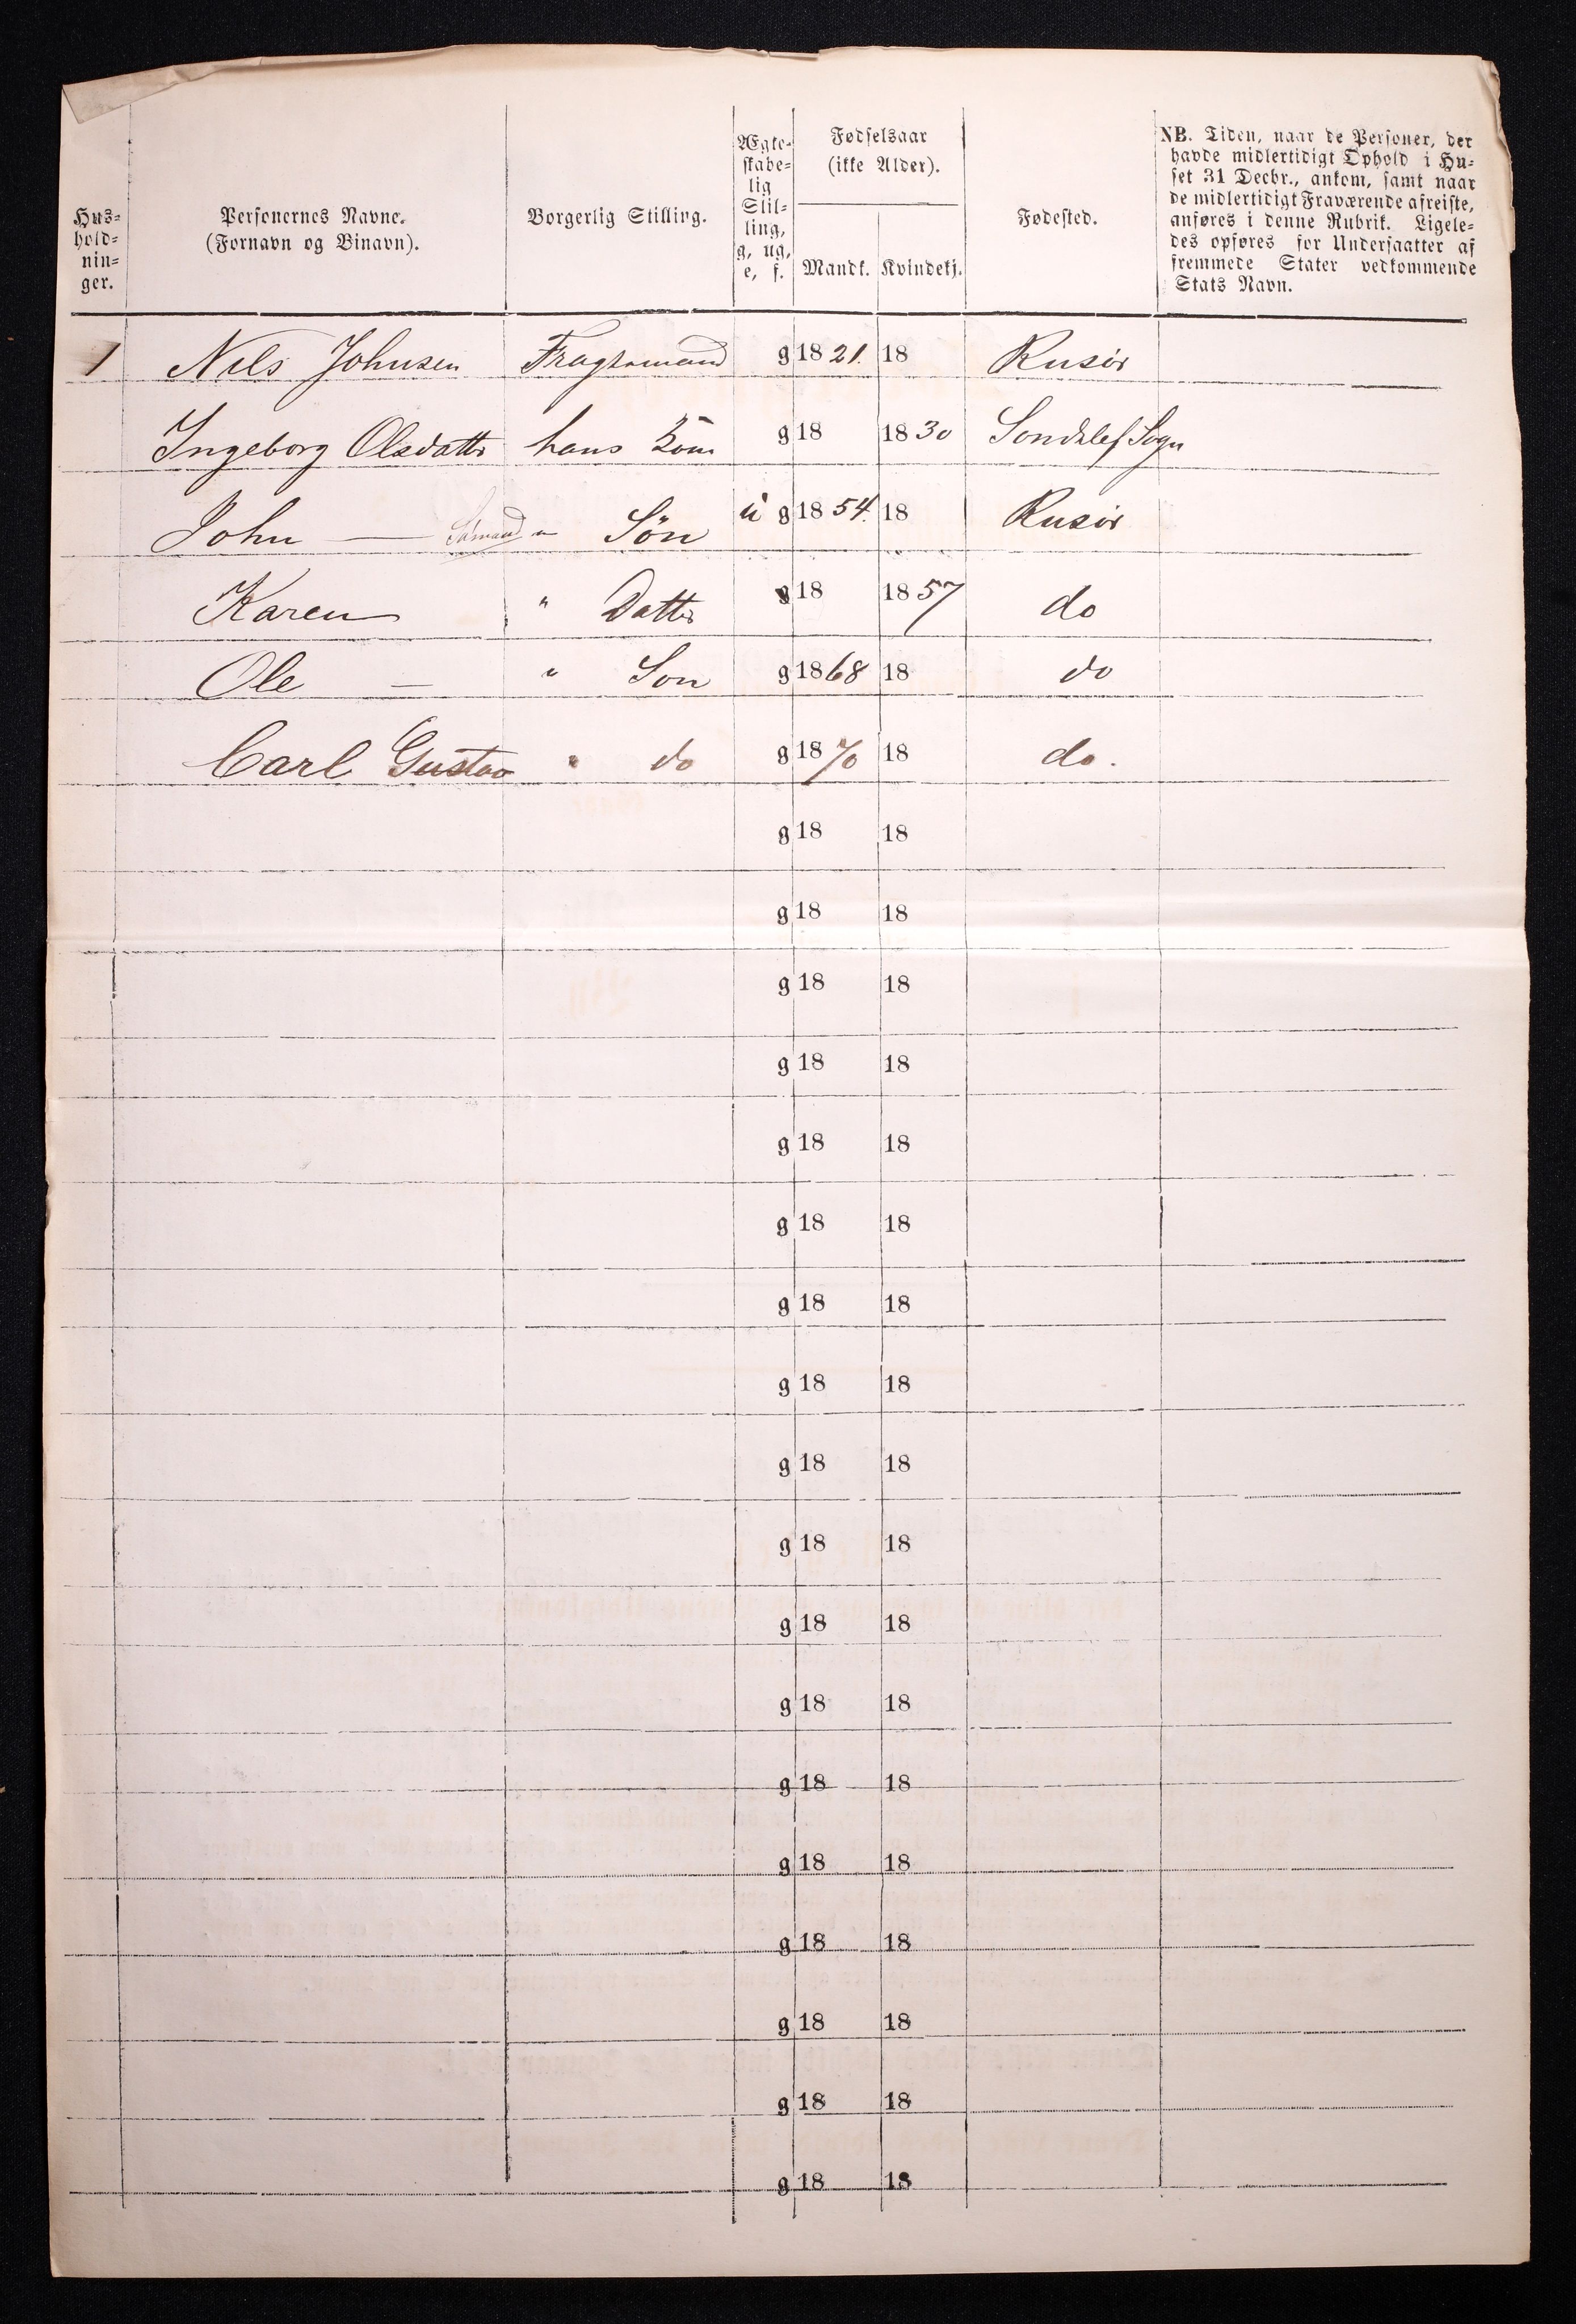 Hus-
hold-
nin-
ger.
Personernes Navne.
(Fornavn og Binavn).
Borgerlig Stilling.
Ægte-
skabe-
lig
Stil-
ling,
g, ug,
e, f.
Fødselsaar
(ikke Alder).
Mandk. Kvindekj.
Fødested.
NB. Tiden, naar de Personer, der
havde midlertidigt Ophold i Hu-
set 31 Decbr., ankom, samt naar
de midlertidigt Fraværende afreiste,
anføres i denne Rubrik. Ligele-
des opføres for Undersaatter af
fremmede Stater vedkommende
Stats Navn.
1 Nils Johnsen Fragtemand g 18 21. 18 Rusör
Ingeborg Olsdatter hans Kone g 18 18 30 Sondelef Sogn
John — Sömand " Sön u g 18 54. 18 Rusör
Karen " Datter g 18 18 57 do
Ole — " Son g 18 68 18 do
Carl Gustav " do g 18 70 18 do.
g 18 18
g 18 18
g 18 18
g 18 18
g 18 18
g 18 18
g 18 18
g 18 18
g 18 18
g 18 18
g 18 18
g 18 18
g 18 18
g 18 18
g 18 18
g 18 18
g 18 18
g 18 18